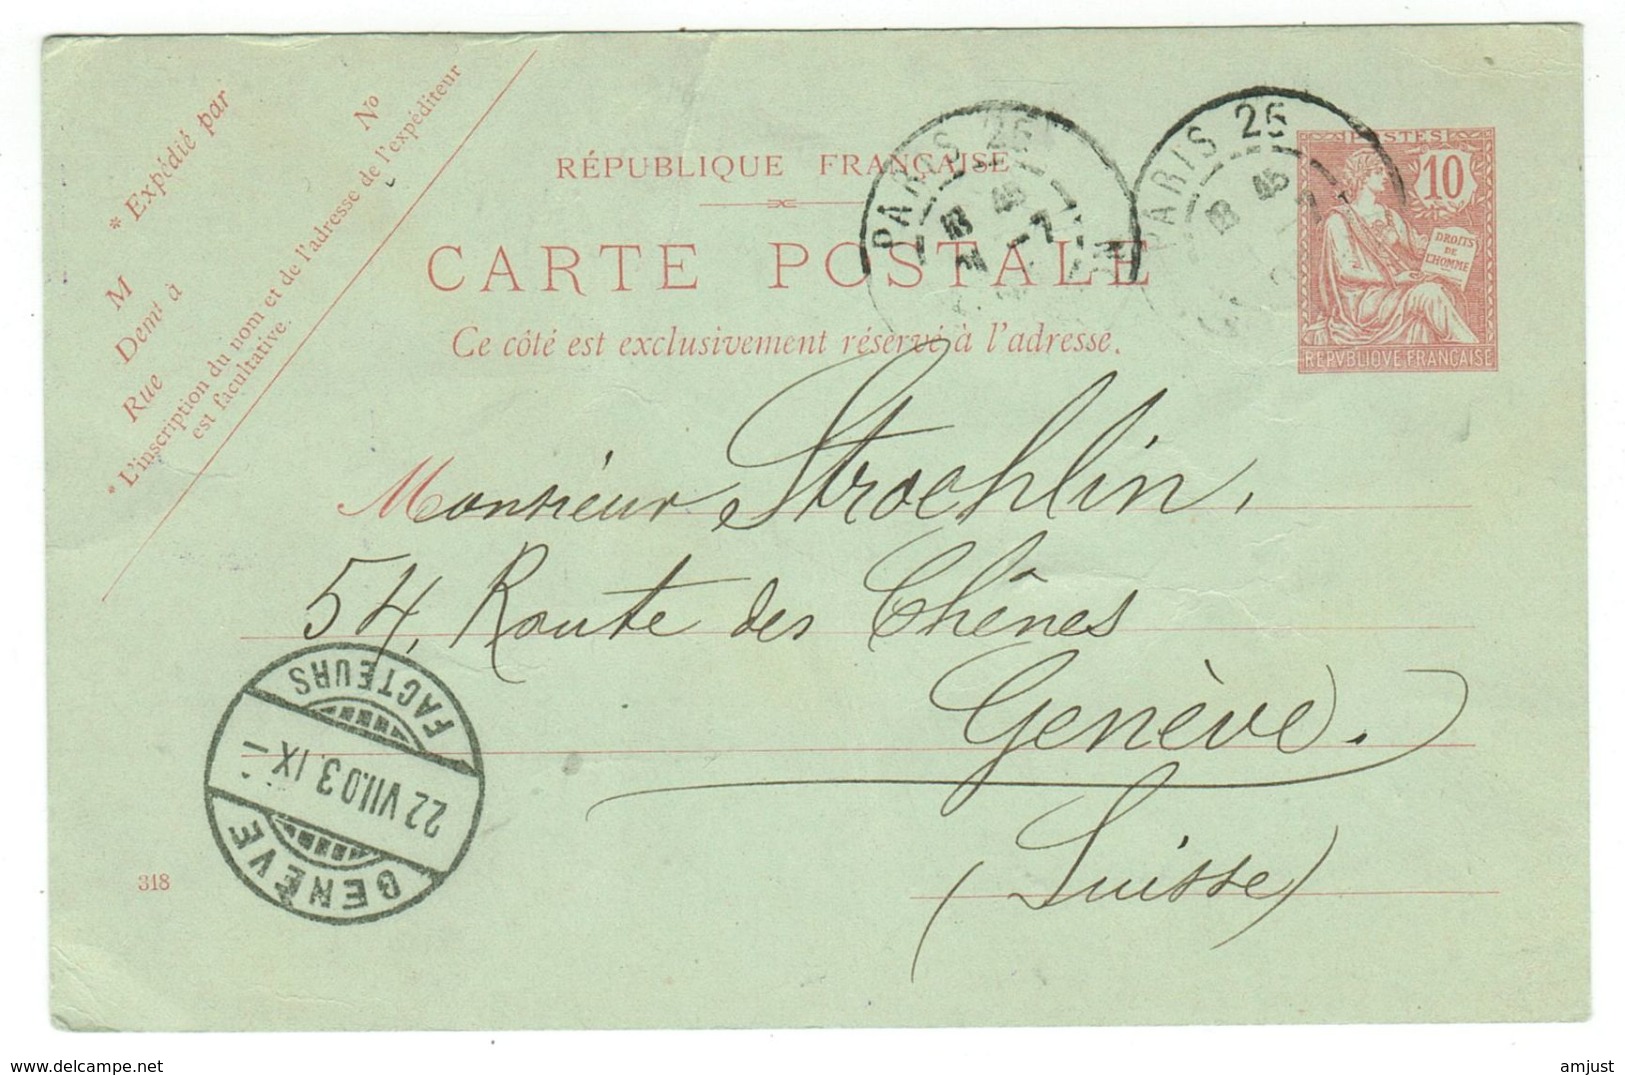 * Expédié par
M
Nº
Demt à
Rue
* L'inscription du nom et de l'adresse de l'expéditeur
est facultative.
RÉPUBLIQUE FRANÇAISE
CARTE POSTALE
Ce côté est exclusivement réservé à l'adresse.
PARIS 25
18 45
PARIS 25
18 45
POSTES
10
DROITS
DE
L'HOMME
REPVBLIQVE FRANÇAISE
Monsieur Stroehlin,
54, Route des Chênes
Genève.
(Suisse)
GENÈVE
22 VII.03. IX
FACTEURS
318
delcampe.net
amjust